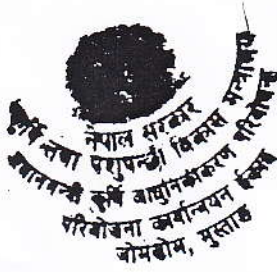 नेपाल सरकार
कृषि तथा पशुपन्छी विकास मन्त्रालय
प्रधानमन्त्री कृषि आधुनिकीकरण परियोजना
परियोजना कार्यान्वयन ईकाइ
जोमसोम, मुस्ताङ